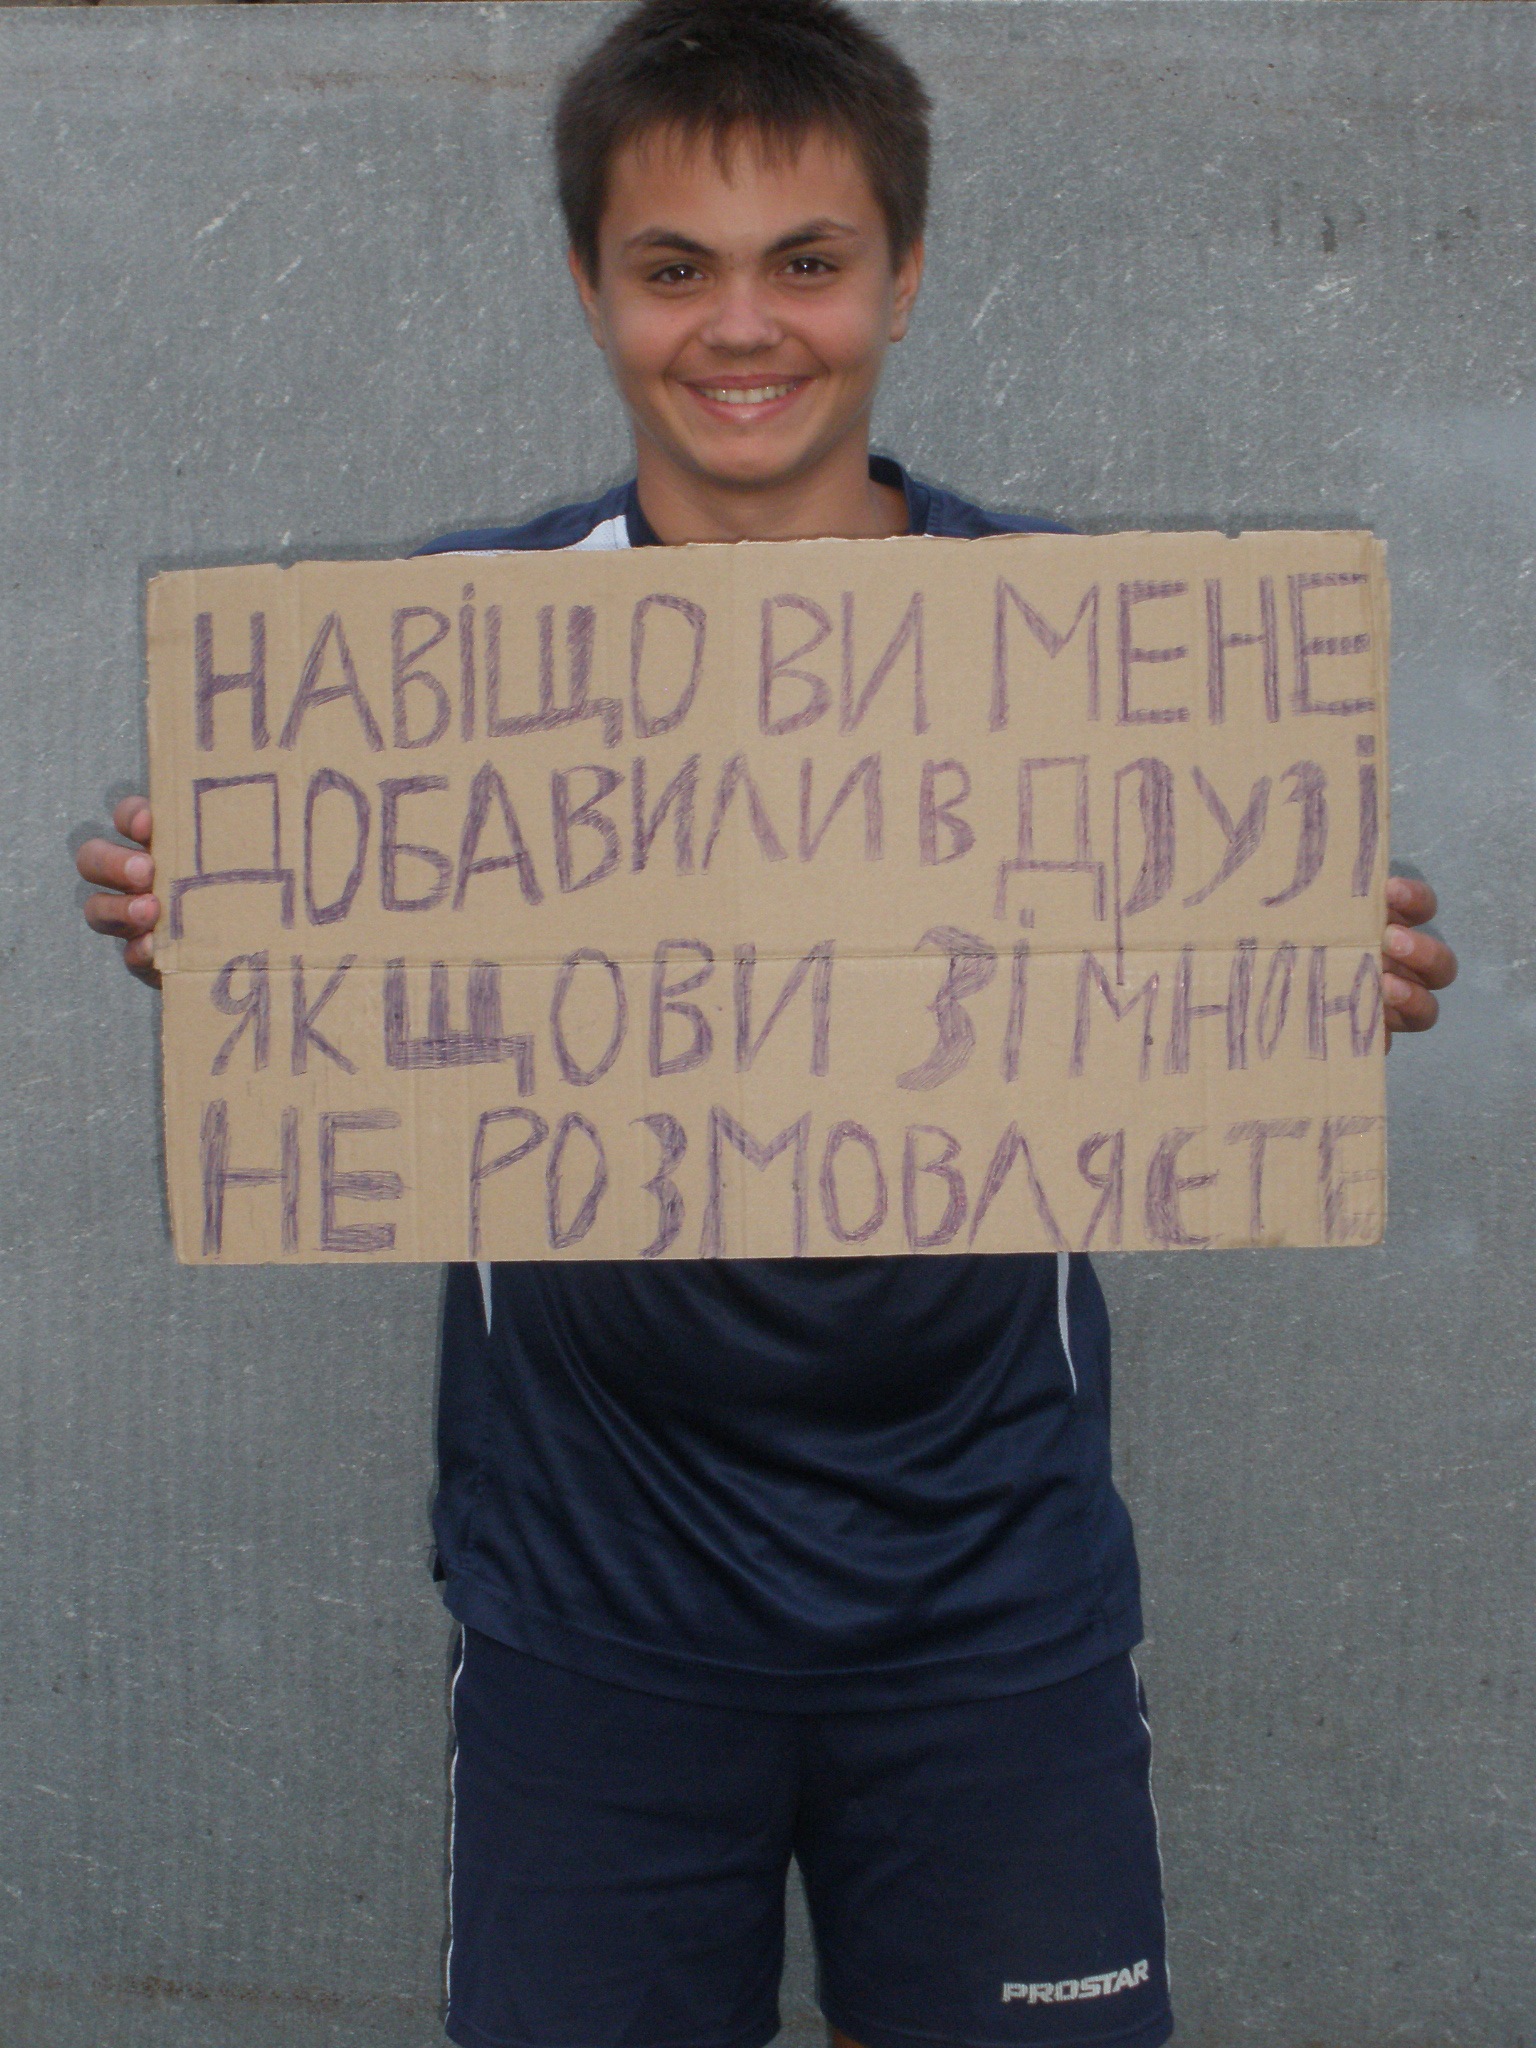 НАВІЩО ВИ МЕНЕ
ДОБАВИЛИ В ДРУЗІ
ЯКЩО ВИ ЗІ МНОЮ
НЕ РОЗМОВЛЯЄТЕ
PROSTAR